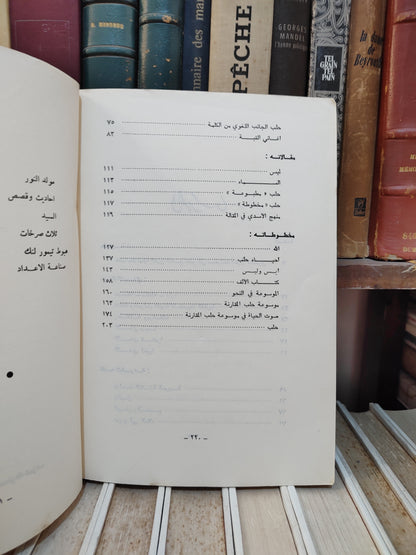 A. BORDEAUX
nnaire des mar
PÊCHE
GEORGES
MANDEL
TEL
GRAIN
TEL
PAIN
la
de
Beyrouth
حلب الجانب اللغوي من الكلمة ٧٥
اغاني القبة ٨٣
مقالاته :
ليس ١١١
السماء ١١٣
حلب « مطبوعة » ١١٥
حلب « مخطوطة » ١١٧
منهج الاسدي في المقالة ١١٩
مخطوطاته :
ال ١٢٧
احياء حلب ١٣٧
ايس وليس ١٤٣
كتاب الالف ١٥٨
الموسوعة في النحو ١٦٠
موسوعة حلب المقارنة ١٦٣
صوت الحياة في موسوعة حلب المقارنة ١٧٤
حلب ٢٠٣
- ٢٢٠ -
مولد النور
احاديث وقصص
السيد
ثلاث صرخات
هبوط تيمور لنك
صناعة الاعداد